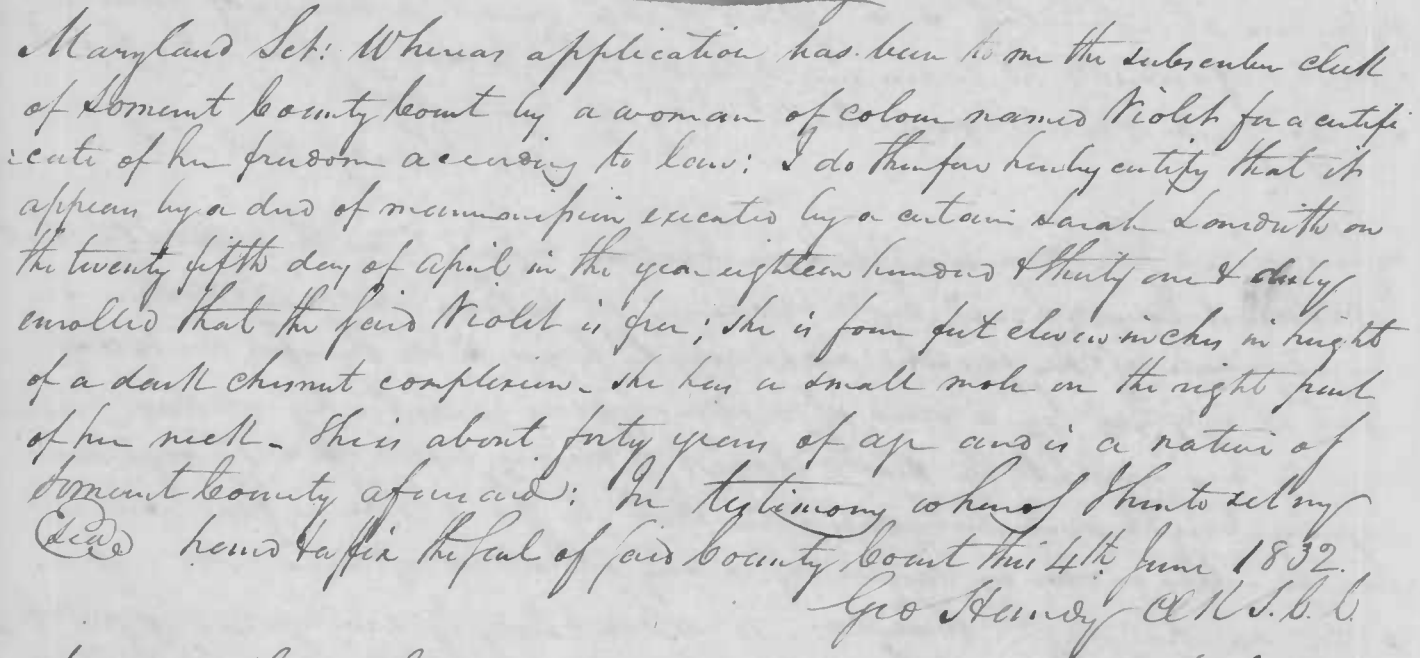 Maryland Sct: Whereas application has been to me the subscriber clerk
of Somerset County Court by a woman of colour named Violet for a certifi
:cate of her freedom according to law: I do therefore hereby certify that it
appears by a deed of manumission executed by a certain Sarah on
the twenty fifth day of april in the year eighteen hundred & thirty one & duly
enrolled that the said Violet is free; she is four feet eleven inches in height
of a dark chesnut complexion - she has a small mole on the right part
of her neck - She is about forty years of age and is a native of
Somerset County aforesaid: In testimony whereof I hereunto set my
hand & affix the seal of said County Court this 4th June 1832.
Seal
Geo Handy Clk S.C.C.